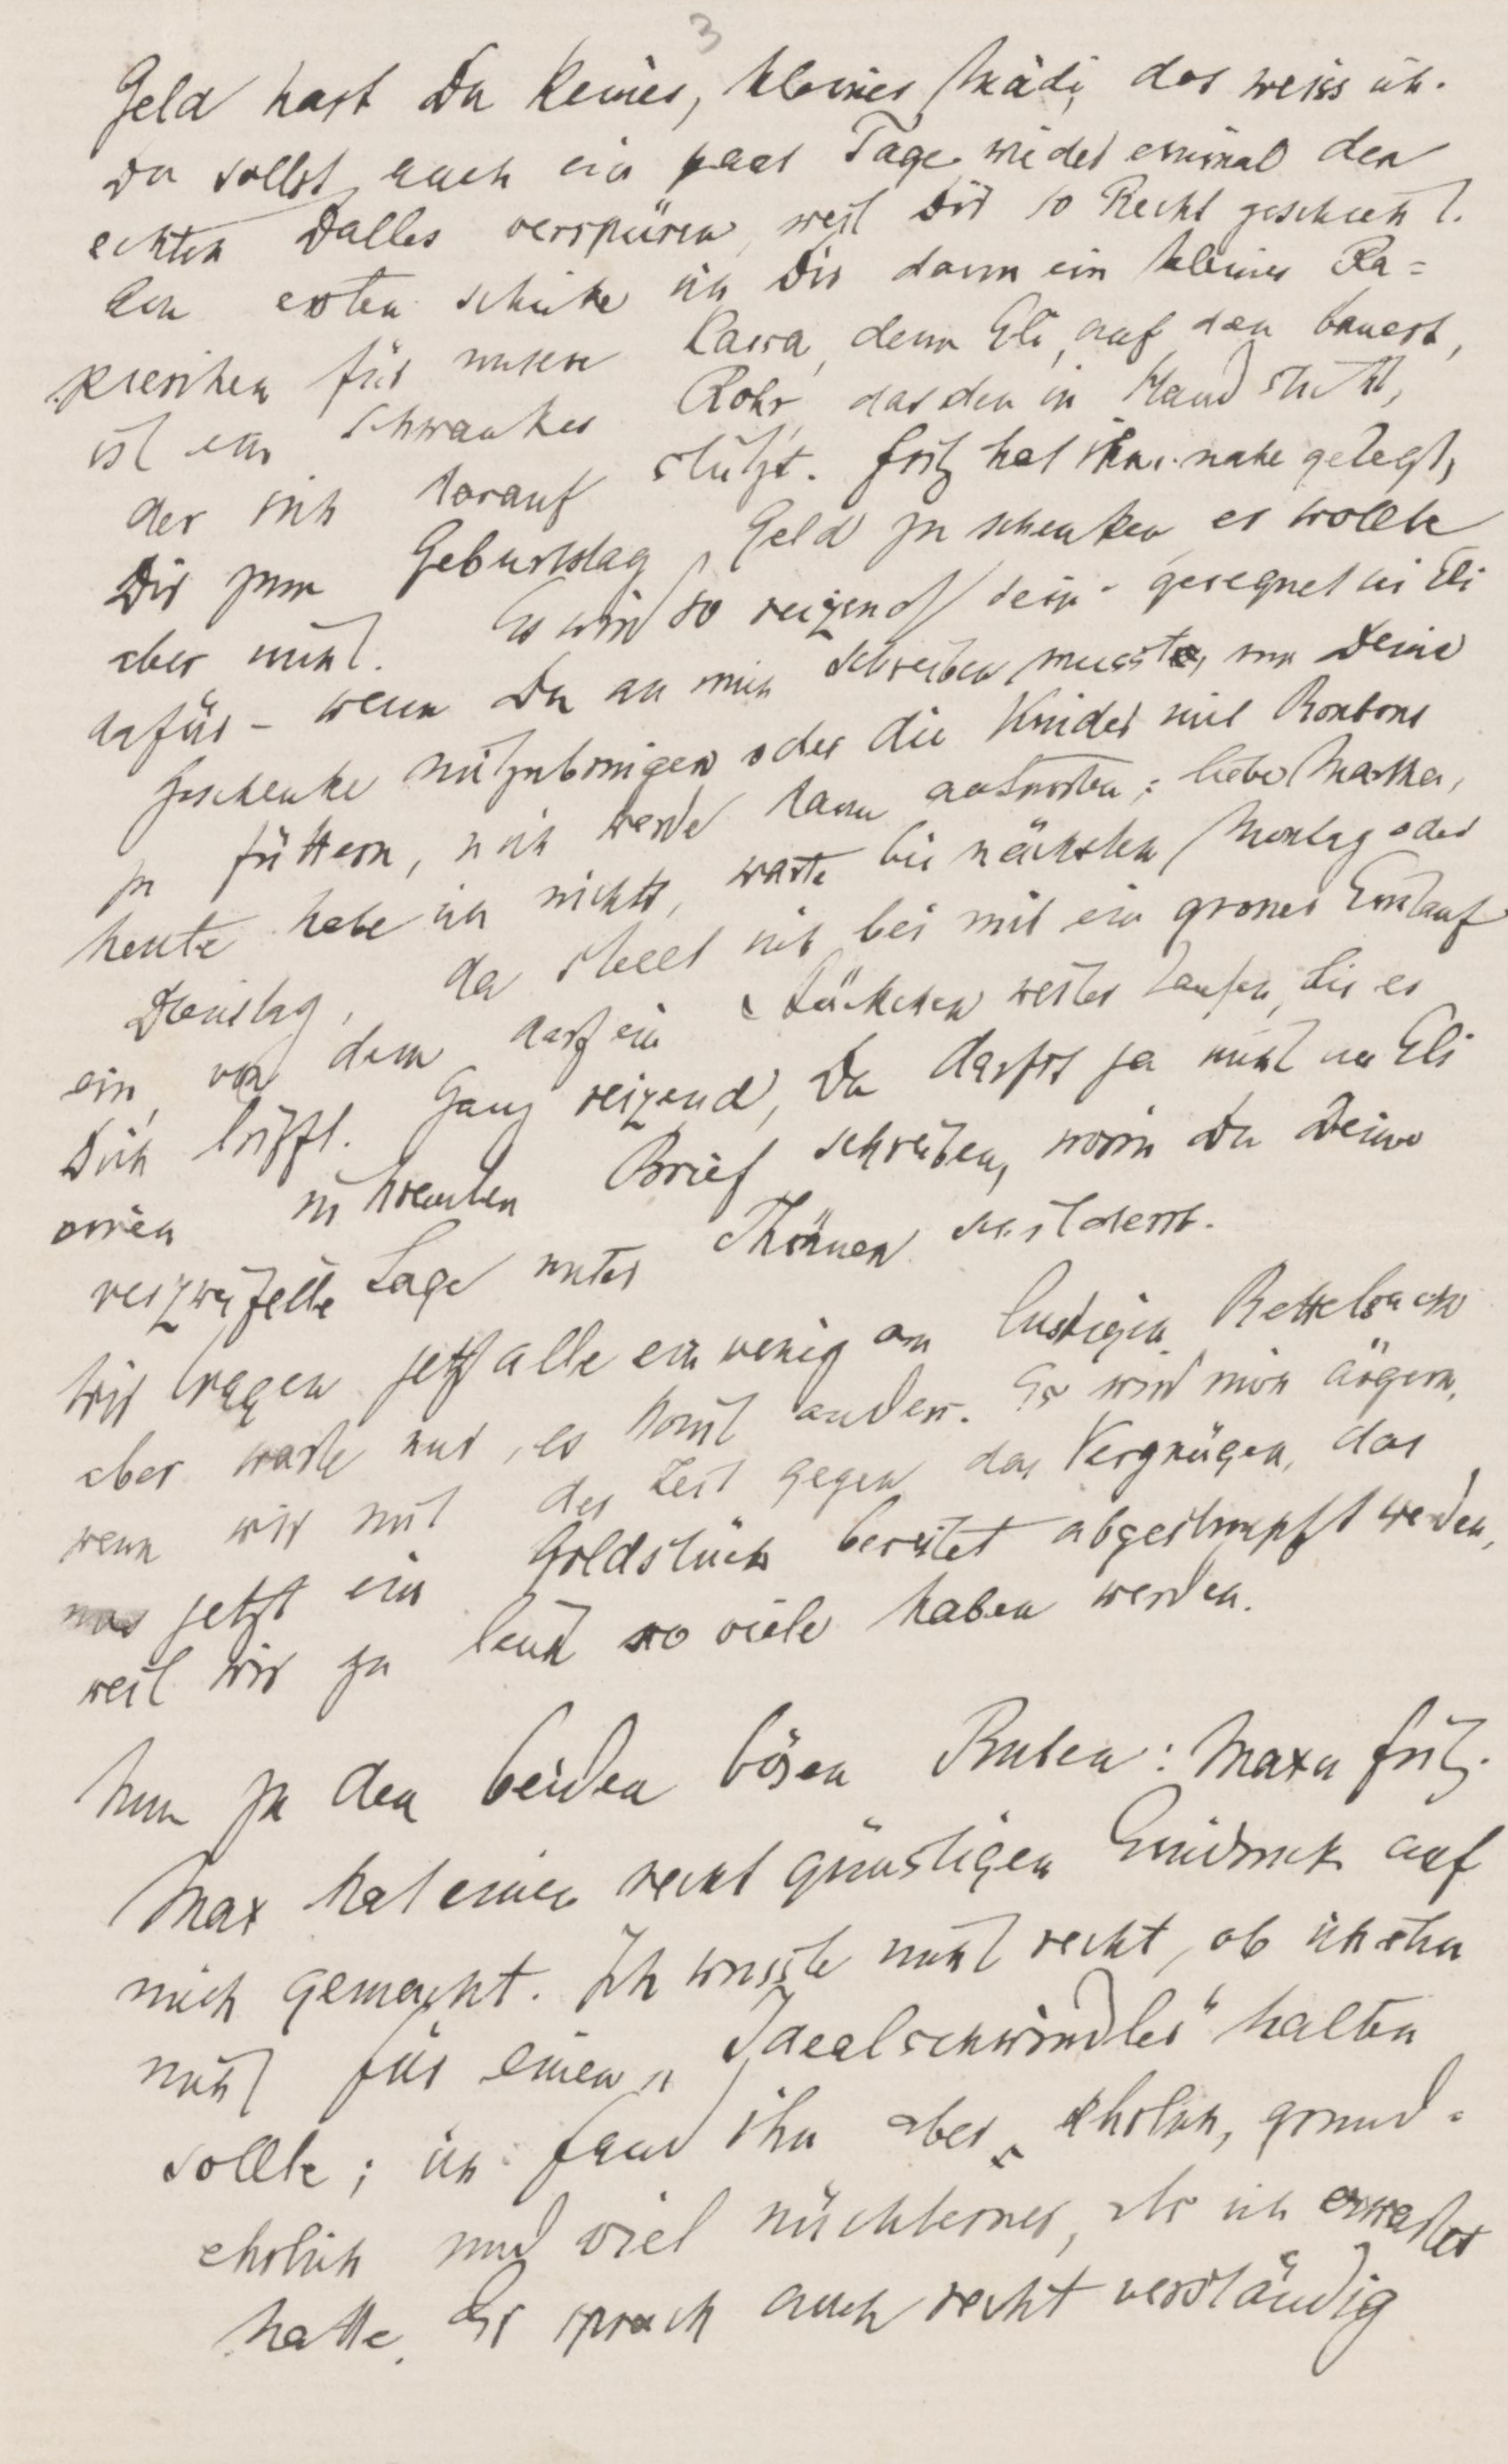 3
Geld hast Du keines, kleines Mädi, das weiss ich.
Du sollst auch ein paar Tage wieder einmal den
echten Dalles verspüren, weil Dir so Recht geschieht.
Den ersten schicke ich Dir dann ein kleines Pa=
pierchen für unsere Kassa, denn Eli, auf den baust,
ist ein schwankes Rohr, das den in Hand sticht,
der sich darauf stützt. Fritz hat ihm nahe gelegt,
Dir zum Geburtstag Geld zu schenken, er wollte
aber nicht. Es wird so reizend sein - gesegnet sei Eli
dafür - wenn Du an mich schreiben musst, um Deine
Geschenke mitzubringen oder die Kinder mit Bonbons
zu füttern, u ich werde dann antworten: liebe Martha,
heute habe ich nichts, warte bis nächsten Montag oder
Dienstag, da stellt sich bei mir ein grosser Einlauf
ein, von dem darf ein Bächchen weiter laufen, bis es
Dich trifft. Ganz reizend, Du darfst ja nicht an Eli
einen Brief schreiben, worin Du Deine
verzweifelte Lage unter Thränen schilderst.
Wir tragen jetzt alle ein wenig am lustigen Bettelsack
aber warte nur, es komt anders. Es wird mich ärgern,
wenn wir mit der Zeit gegen das Vergnügen, das
uns jetzt ein Goldstück bereitet abgestumpft werden,
weil wir zu leicht so viele haben werden.
Nun zu den beiden bösen Buben: Max u Fritz.
Max hat einen recht günstigen Eindruck auf
mich gemacht. Ich wusste nicht recht, ob ich ihn
nicht für einen „Idealschwindler“ halten
sollte; ich fand ihn aber ehrlich, grund=
ehrlich und viel nüchterner, als ich erwartet
hatte. Er sprach auch recht verständig